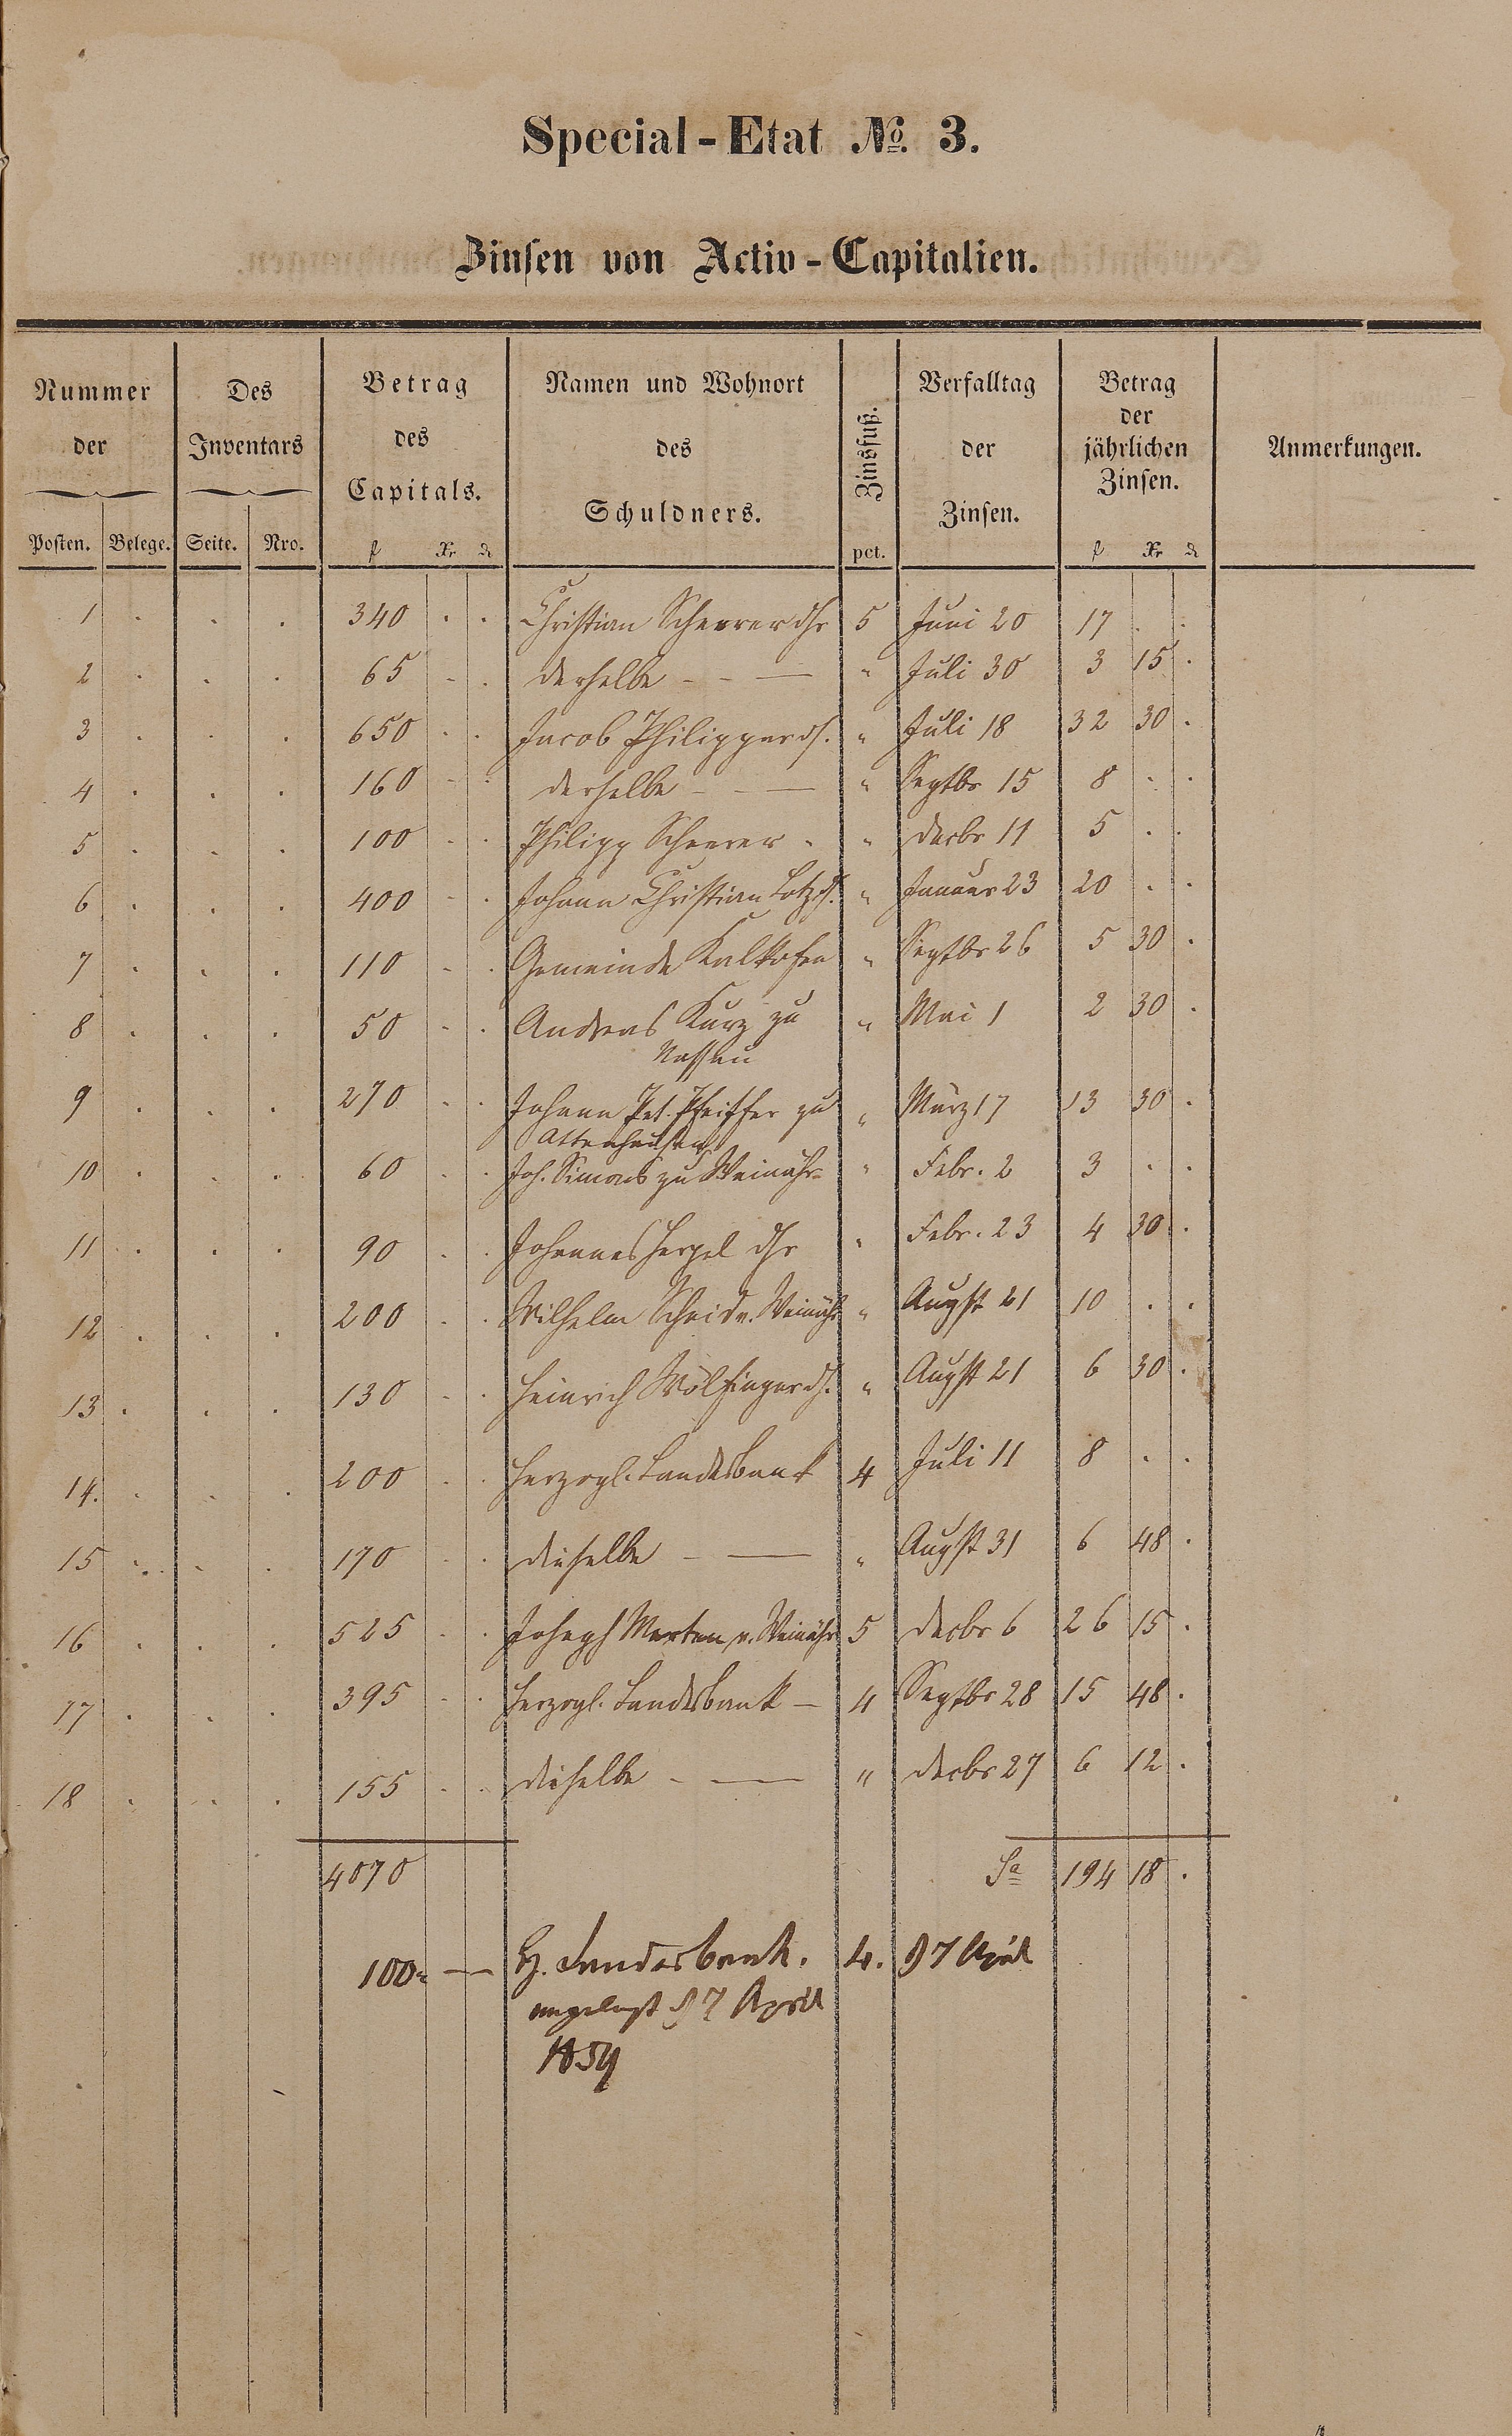 Special-Etat No. 3.
Zinsen von Activ-Capitalien.
Nummer der Posten. Belege. Des Inventars Seite. Nro. Betrag des Capitals. f Xr ₰ Namen und Wohnort des Schuldners. Zinsfuß. pct. Verfalltag der Zinsen. Betrag der jährlichen Zinsen. f Xr ₰ Anmerkungen.
1 . . . 340 . . Christian Scheerer dhr 5 Juni 20 17 . .
2 . . . 65 . . derselbe - - — " Juli 30 3 15 .
3 . . . 650 . . Jacob Philipp " Juli 18 32 30 .
4 . . . 160 . . derselbe - - — " Septbr 15 8 . .
5 . . . 100 . . Philipp Scheerer - " Decbr 11 5 . .
6 . . . 400 . . Johann Christian Lotz d. " Januar 23 20 . .
7 . . . 110 . . Gemeinde Kalkofen " Septbr 26 5 30 .
8 . . . 50 . . Andreas Kurz zu " Mai 1 2 30 .
Nassau
9 . . . 270 . . Johann Pet. Pfeiffer zu " März 17 13 30 .
Attenhausen
10 . . . 60 . . Joh. Simons zu Weinähr " Febr. 2 3 . .
11 . . . 90 . . Johannes dhr " Febr. 23 4 30 .
12 . . . 200 . . Wilhelm Scheid v. Weinähr " August 21 10 . .
13 . . . 130 . . Heinrich Wölfinger d. " August 21 6 30 .
14. . . . 200 . . Herzogl. Landesbank 4 Juli 11 8 . .
15 . . . 170 . . dieselbe - — " August 31 6 48 .
16 . . . 525 . . Joseph Merten v. Weinähr 5 Decbr 6 26 15 .
17 . . . 395 . . Herzogl. Landesbank — 4 Septbr 28 15 48 .
18 . . . 155 . . dieselbe - — " Decbr 27 6 12 .
4070 Sa 194 18 .
100 — H. Landesbank. 4. 7 April
angelegt 7 April
1859